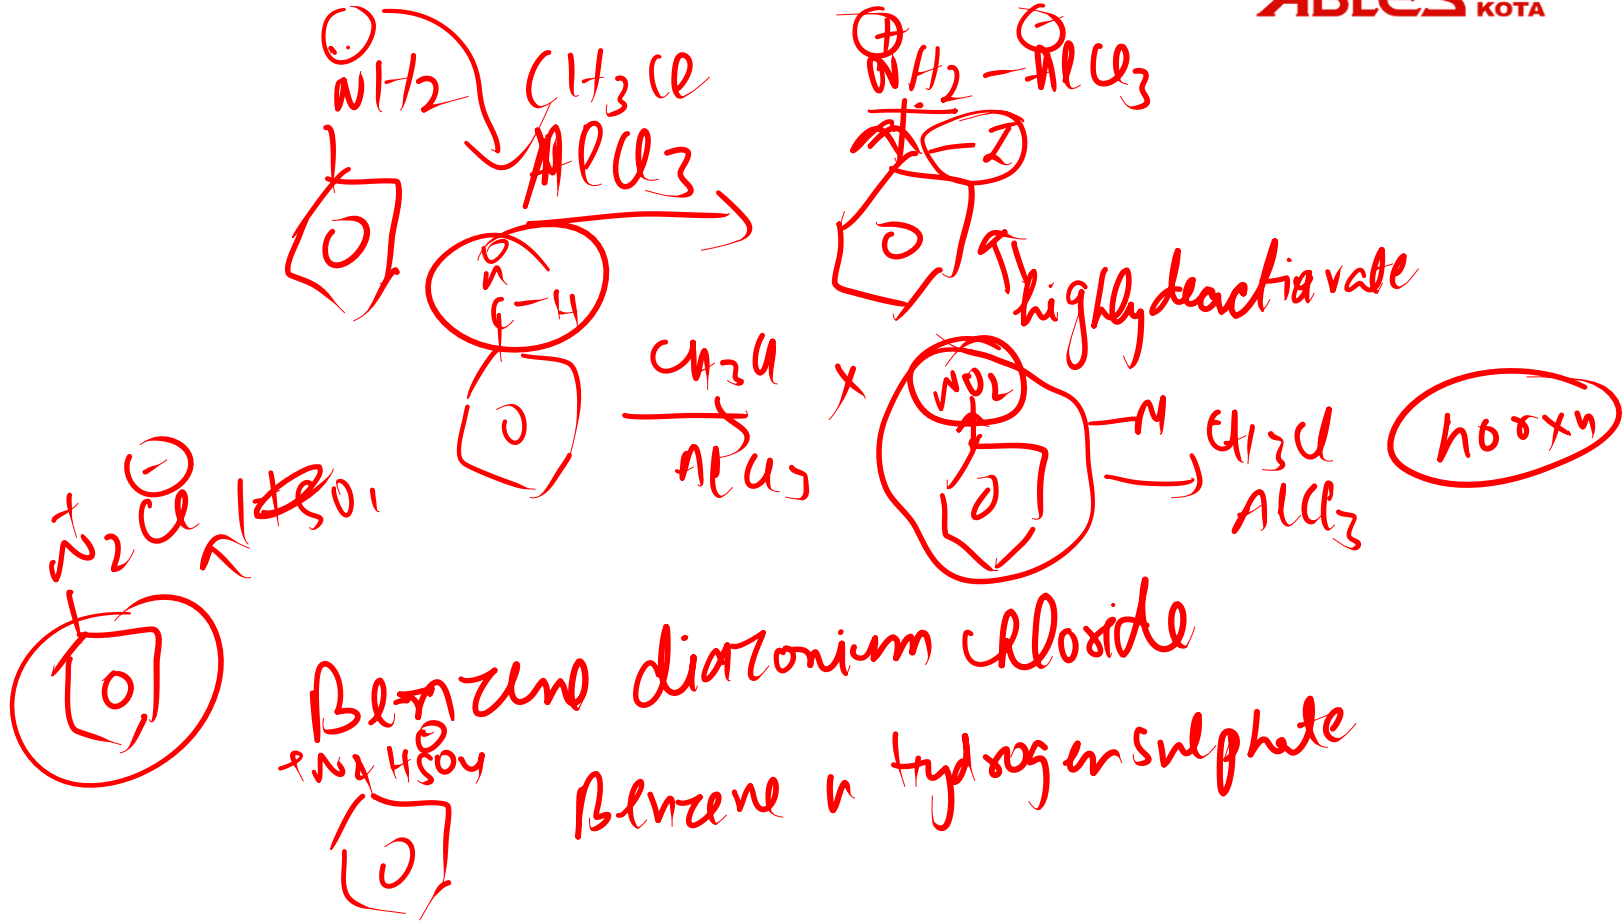 ABLES KOTA
NH2 CH3Cl
AlCl3
+ NH2 - AlCl3
-I
O
C-H
highly deactiavate
CH3Cl
AlCl3
X
NO2
M
CH3Cl
AlCl3
no rxn
+ N2Cl -
Benzene diazonium chloride
+N2 HSO4 -
Benzene " Hydrogensulphate